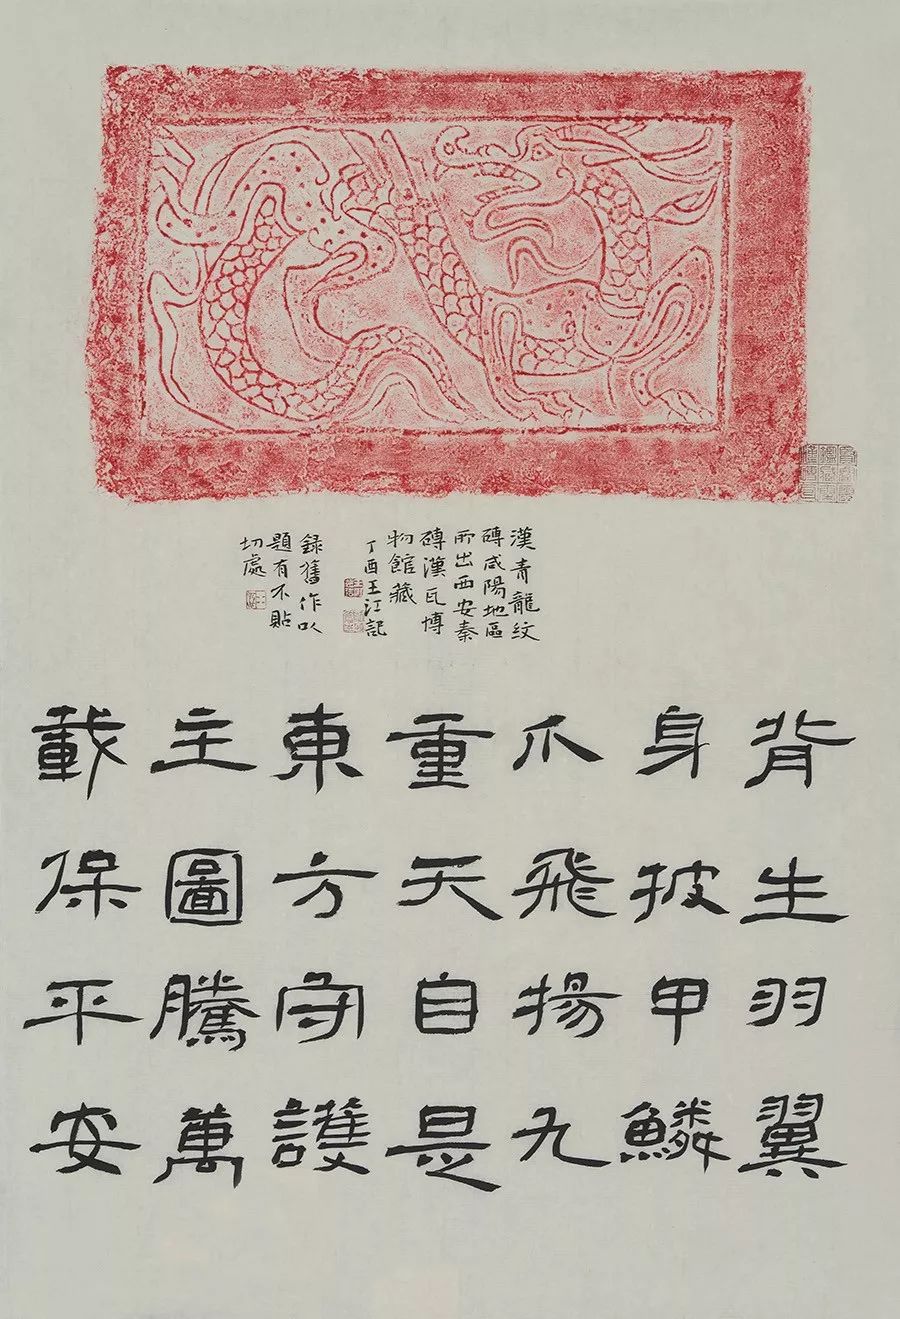 漢青龍紋
磚咸陽地區
所出西安秦
磚漢瓦博
物館藏
丁酉王江記
錄舊作以
題有不貼
切處
背生羽翼
身披甲鱗
爪飛揚九
重天自是
東方守護
主圖騰萬
載保平安